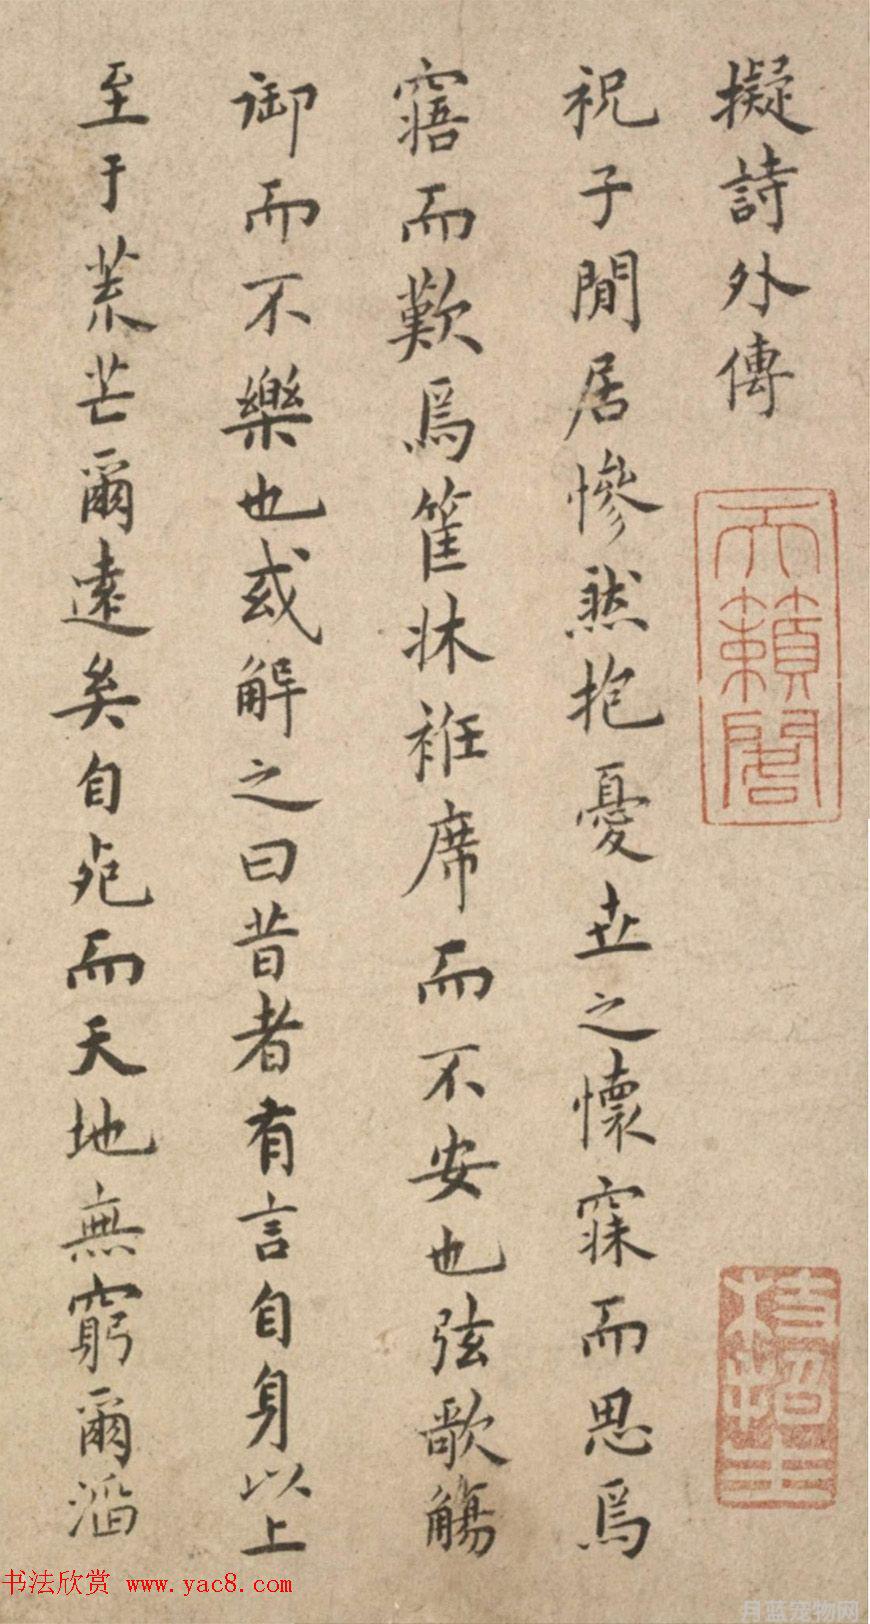 擬詩外傳
祝子閒居慘然抱憂世之懷寐而思焉
寤而歎焉筐牀衽席而不安也弦歌觴
御而不樂也或解之曰昔者有言自身以上
至于荒芒爾遠矣自死而天地無窮爾滔
天籟閣
枝指生
书法欣赏 www.yac8.com
月蓝宠物网